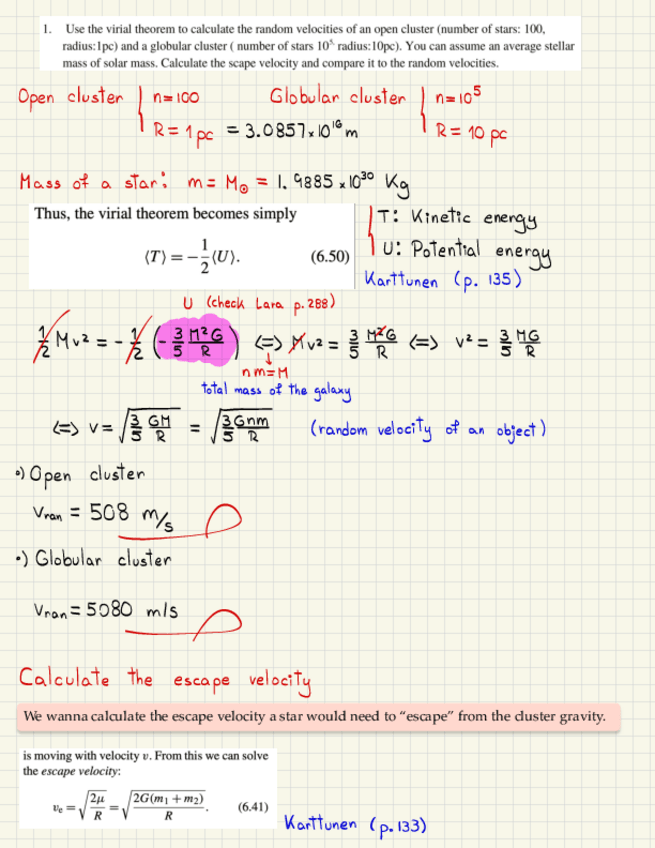 1. Use the virial theorem to calculate the random velocities of an open cluster (number of stars: 100,
radius:1pc) and a globular cluster ( number of stars 10⁵, radius:10pc). You can assume an average stellar
mass of solar mass. Calculate the scape velocity and compare it to the random velocities.
Open cluster { n=100
R = 1 pc = 3.0857×10¹⁶ m
Globular cluster { n=10⁵
R = 10 pc
Mass of a star: m = M⊙ = 1.9885 ×10³⁰ Kg
Thus, the virial theorem becomes simply
⟨T⟩ = −1/2⟨U⟩. (6.50)
T: Kinetic energy
U: Potential energy
Karttunen (p. 135)
U (check Lara p. 288)
1/2 Mv² = - 1/2 (- 3/5 M²G/R) ⟺ Mv² = 3/5 M²G/R ⟺ v² = 3/5 MG/R
nm=M
total mass of the galaxy
⟺ v = √(3/5 GM/R) = √(3/5 Gnm/R) (random velocity of an object)
•) Open cluster
Vran = 508 m/s
•) Globular cluster
Vran = 5080 m/s
Calculate the escape velocity
We wanna calculate the escape velocity a star would need to “escape” from the cluster gravity.
is moving with velocity v. From this we can solve
the escape velocity:
vₑ = √(2μ/R) = √(2G(m₁ + m₂)/R). (6.41)
Karttunen (p. 133)